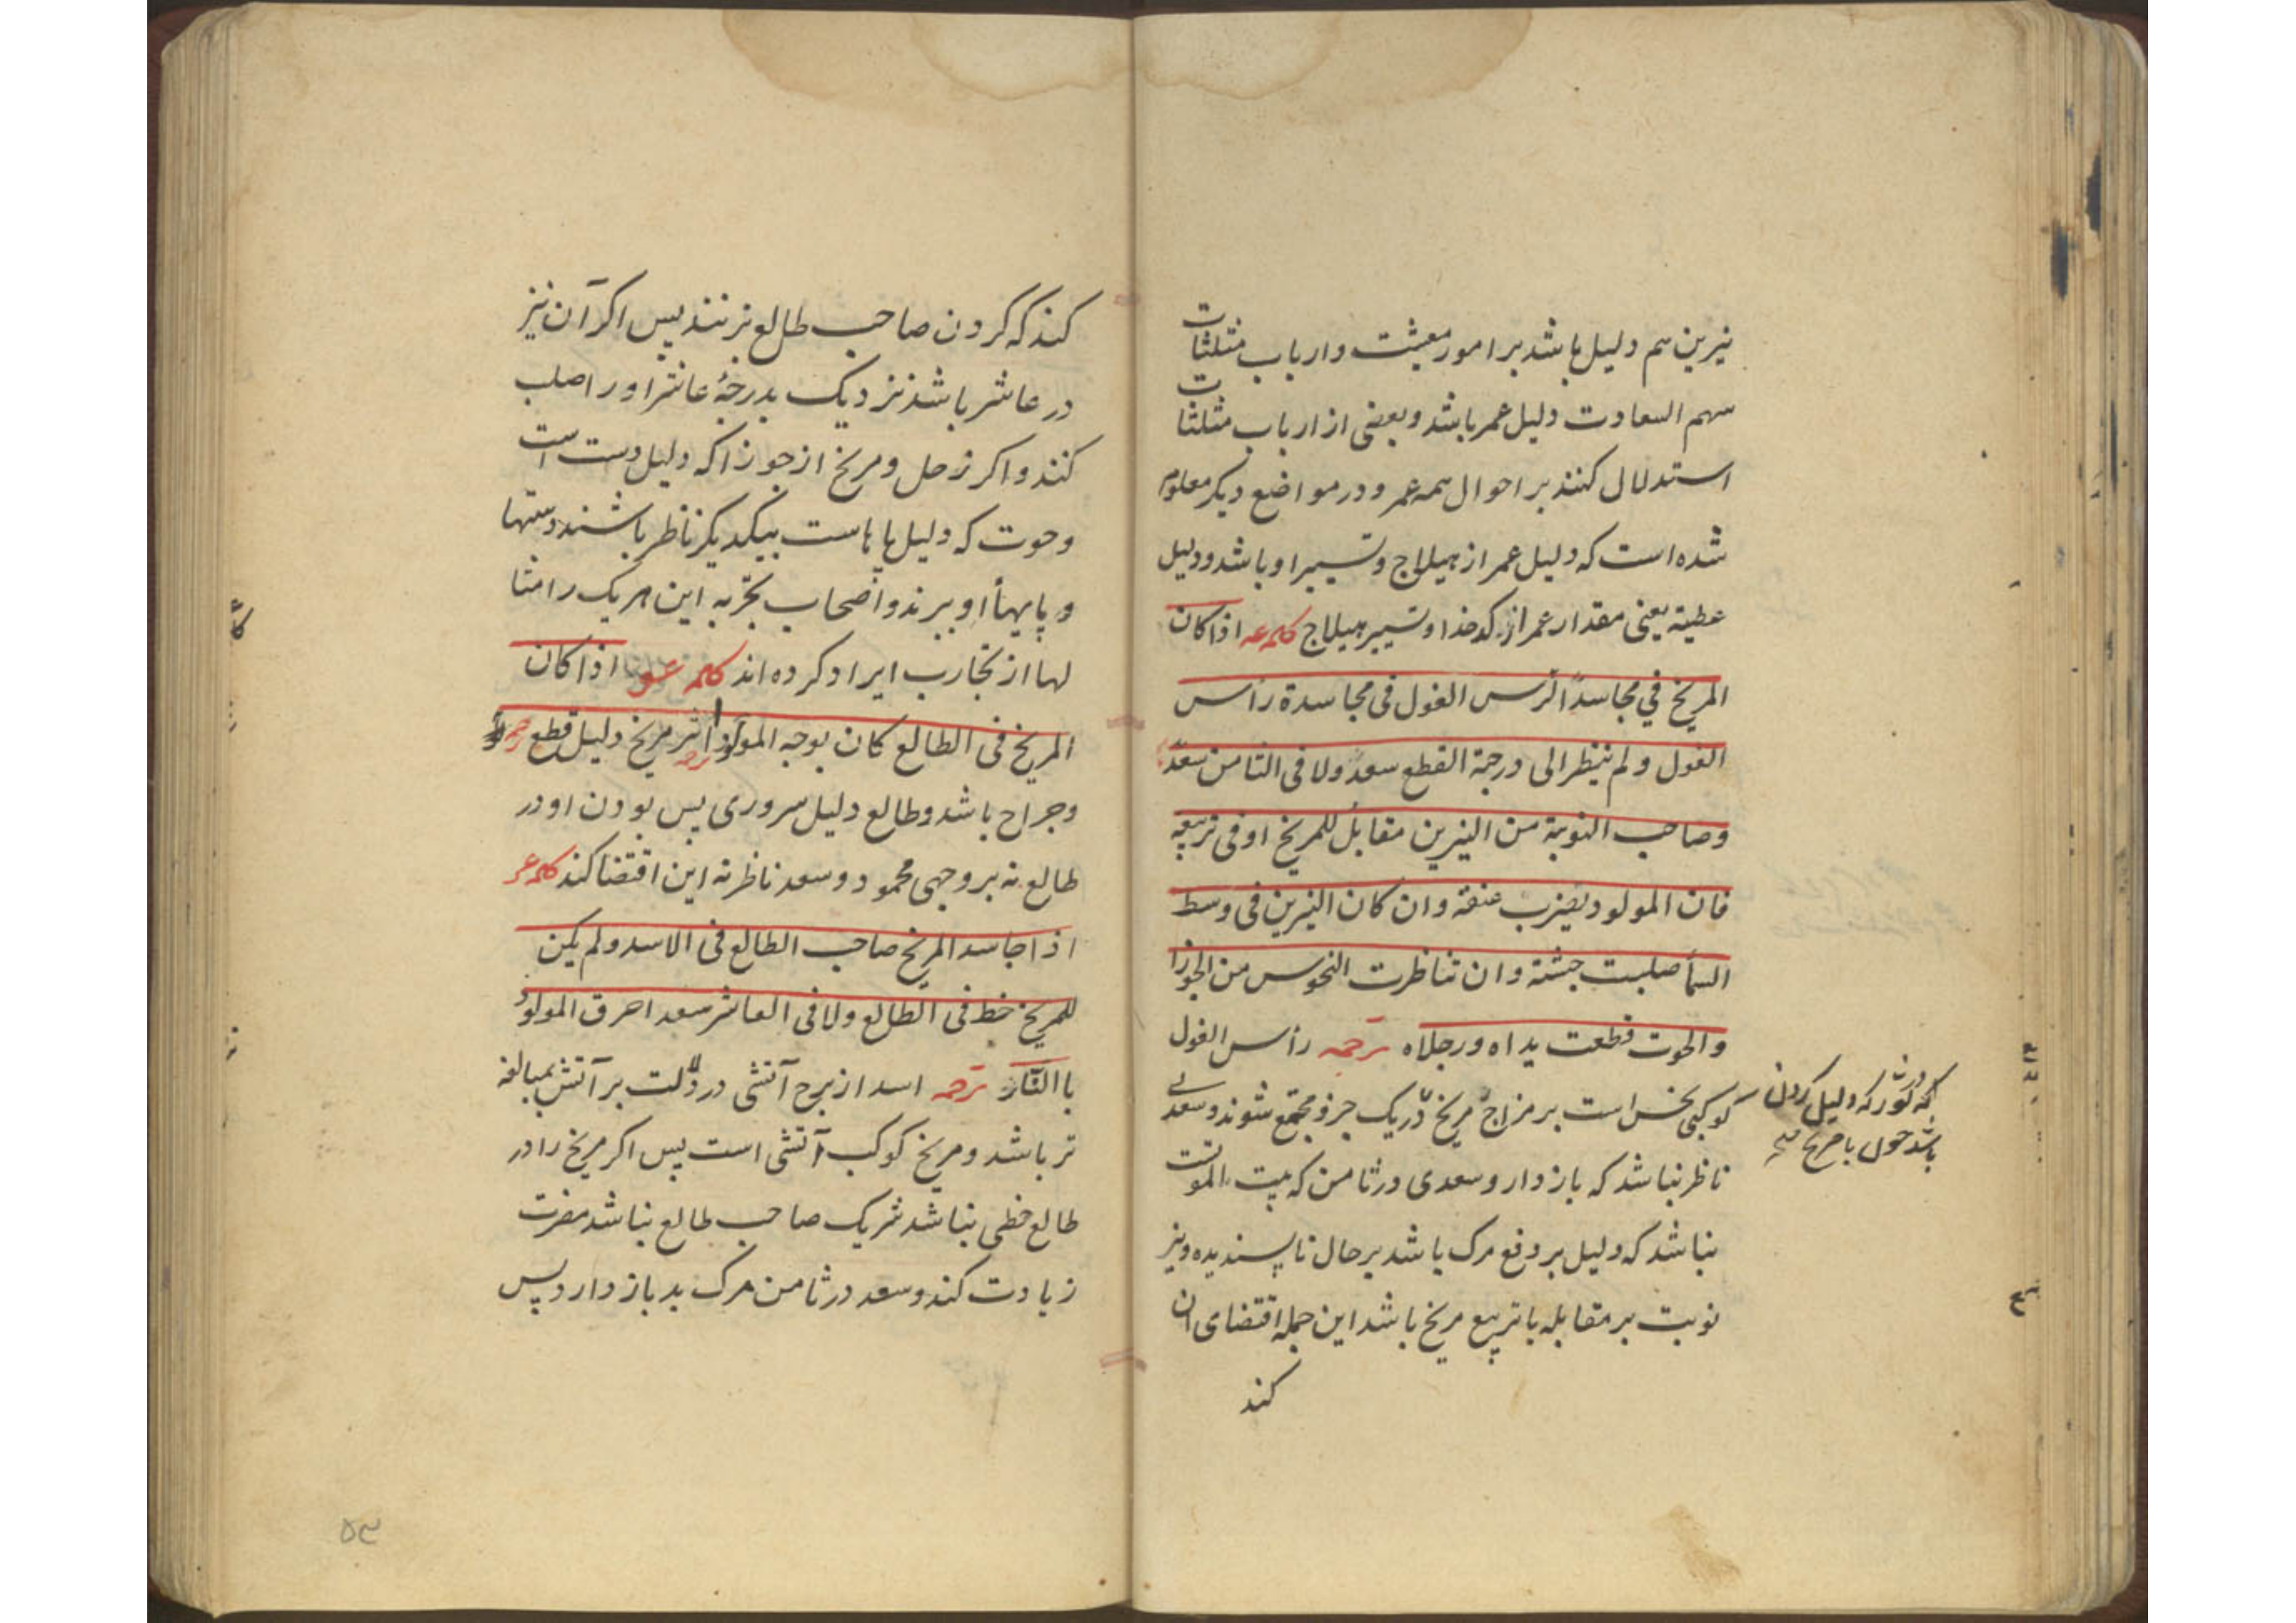 نیرین هم دلیل باشد بر امور معیشت و ارباب مثلثات
سهم السعادت دلیل عمر باشد و بعضی از ارباب مثلثات
استدلال کنند بر احوال همه عمر و در مواضع دیگر معلوم
شده است که دلیل عمر از هیلاج و تسییر او باشد و دلیل
عطیة یعنی مقدار عمر از کدخدا و تسییر هیلاج کلمه عه اذا کان
المریخ فی مجاسدة الرس الغول فی مجاسدة رأس
الغول و لم ینظر الی درجة القطع سعد ولا فی الثامن سعد
وصاحب النوبة من النیرین مقابل للمریخ او فی تربیعه
فان المولود یضرب عنقه وان کان النیرین فی وسط
السمأ صلبت جثته وان تناظرت النحوس من الجوزا
والحوت قطعت یداه ورجلاه ترجمه رأس الغول
کوکبی نحس است بر مزاج مریخ در یک جزو مجتمع شوند و سعدی
ناظر نباشد که باز دارد و سعدی در ثامن که بیت الموتست
نباشد که دلیل بر دفع مرک باشد بر حال ناپسندیده و نیز
نوبت بر مقابله یا تربیع مریخ باشد این جمله اقتضای آن
کند
که دلیل کردن
باشد با مریخ
کند که کردن صاحب طالع بزنند پس اکر آن نیز
در عاشر باشد نزدیک بدرجهٔ عاشر او را صلب
کنند و اکر زحل و مریخ از جوزا که دلیل دست است
و حوت که دلیل پا هاست بیکدیکر ناظر باشند دستها
و پایهأ او ببرند و اصحاب تجربه این هریک را مثا
لها از تجارب ایراد کرده اند کلمه اذا کان
المریخ فی الطالع کان بوجه المولود اثر ترجمه مریخ دلیل قطع
و جراح باشد و طالع دلیل سر و روی پس بودن او در
طالع نه بر وجهی محمود و سعد ناظر نه این اقتضا کند کلمه عر
اذا جاسد المریخ صاحب الطالع فی الاسد و لم یکن
للمریخ خط فی الطالع ولا فی العاشر سعد احرق المولود
باالنار ترجمه اسد از برج آتشی در دلالت بر آتش بمبالغه
تر باشد و مریخ کوکب آتشی است پس اکر مریخ را در
طالع خطی نباشد شریک صاحب طالع نباشد مضرت
زیادت کند و سعد در ثامن مرک بد باز دارد پس
۵۳